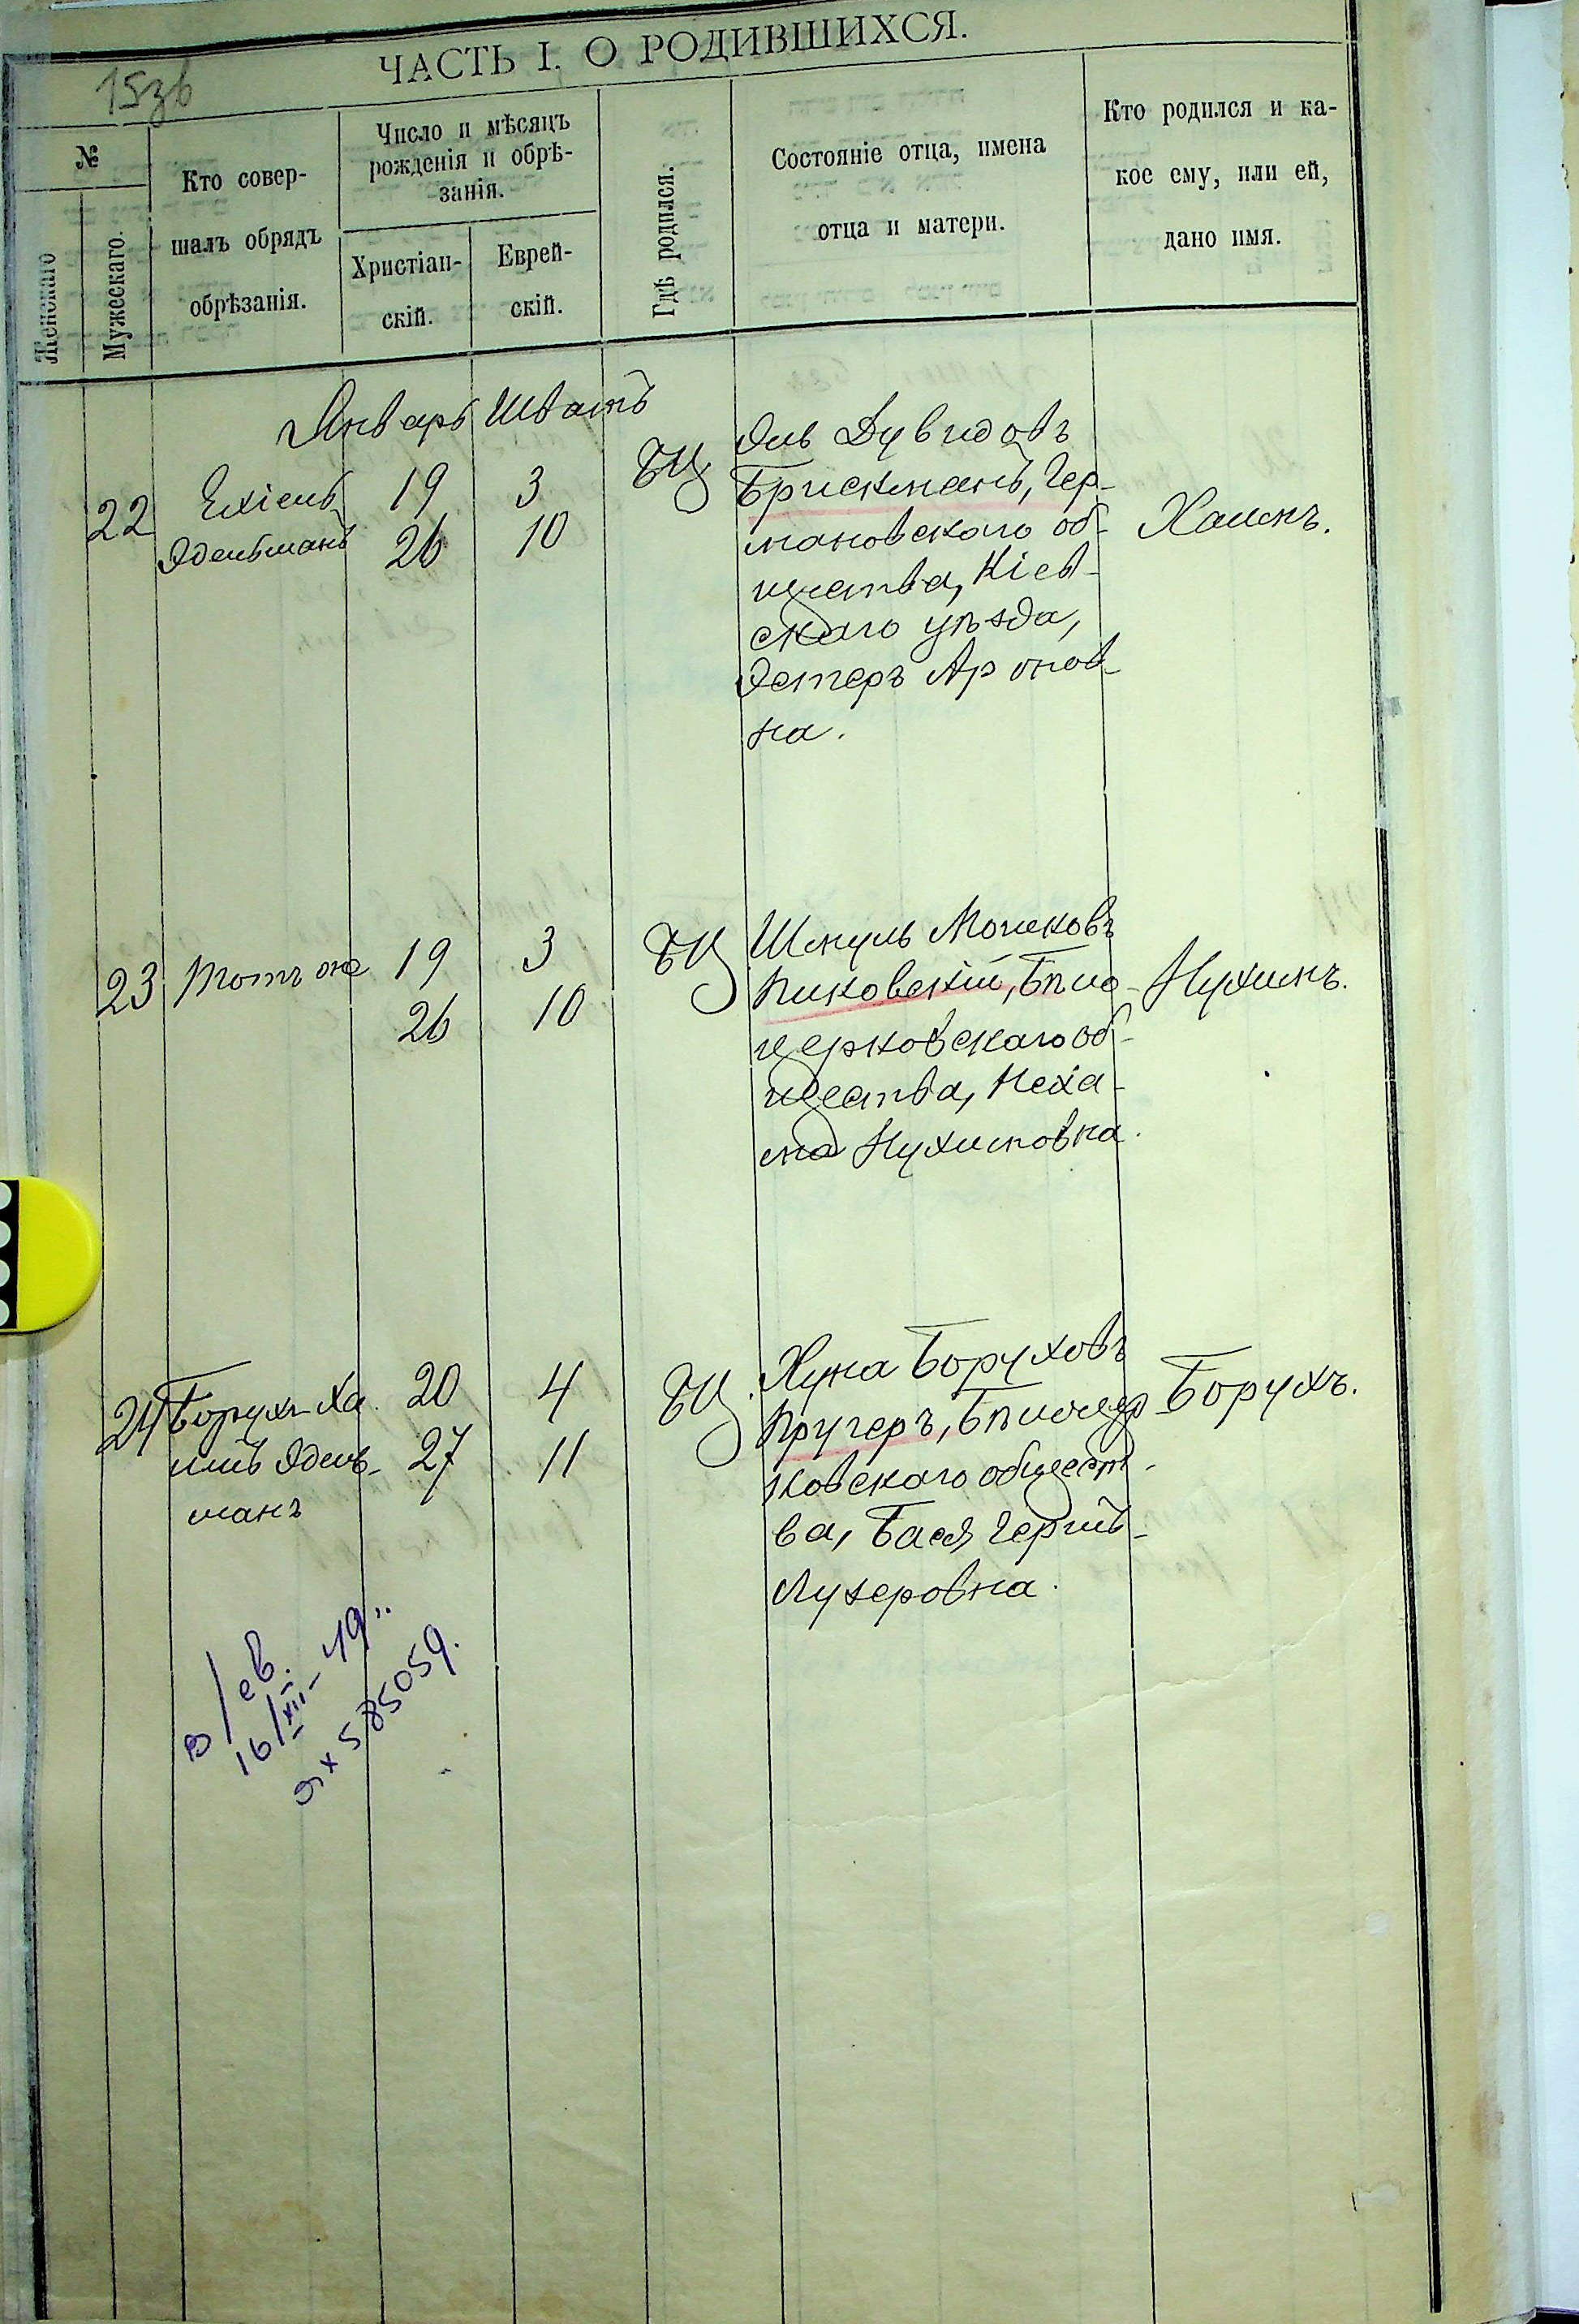 ЧАСТЬ I. О РОДИВШИХСЯ.
15зв
№
Женскаго
Мужескаго.
Кто совер-
шалъ обрядъ
обрѣзанія.
Число и мѣсяцъ
рожденія и обрѣ-
занія.
Христіан-
скій.
Еврей-
скій.
Гдѣ родился.
Состояніе отца, имена
отца и матери.
Кто родился и ка-
кое ему, или ей,
дано имя.
Январь Шватъ
22
Ехіель
Эдельманъ
19 3
26 10
БЦ
Эль Дувидовъ
Брискманъ, Гер-
мановскаго об-
щества, Кіев-
скаго уѣзда,
Эстеръ Аронов-
на.
Хаимъ.
23
Тотъ же
19 3
26 10
БЦ
Шмуль Мошковъ
Пиковскій, Бѣло-
церковскаго об-
щества, Неха-
ма Нухимовна.
Нухимъ.
24
Борухъ-Ха
имъ Эдель-
манъ
20 4
27 11
БЦ.
Хуна Боруховъ
Кругеръ, Бѣлоцер
ковскаго общест-
ва, Бася Герш-
Лузеровна.
Борухъ.
в/св.
16/XII-49"
585059.